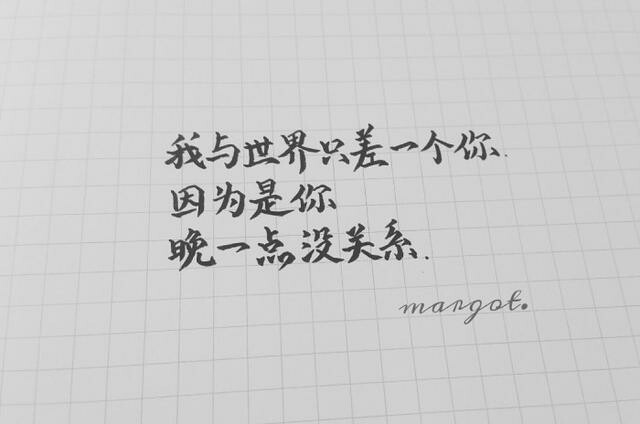 我与世界只差一个你.
因为是你
晚一点没关系.
margot.